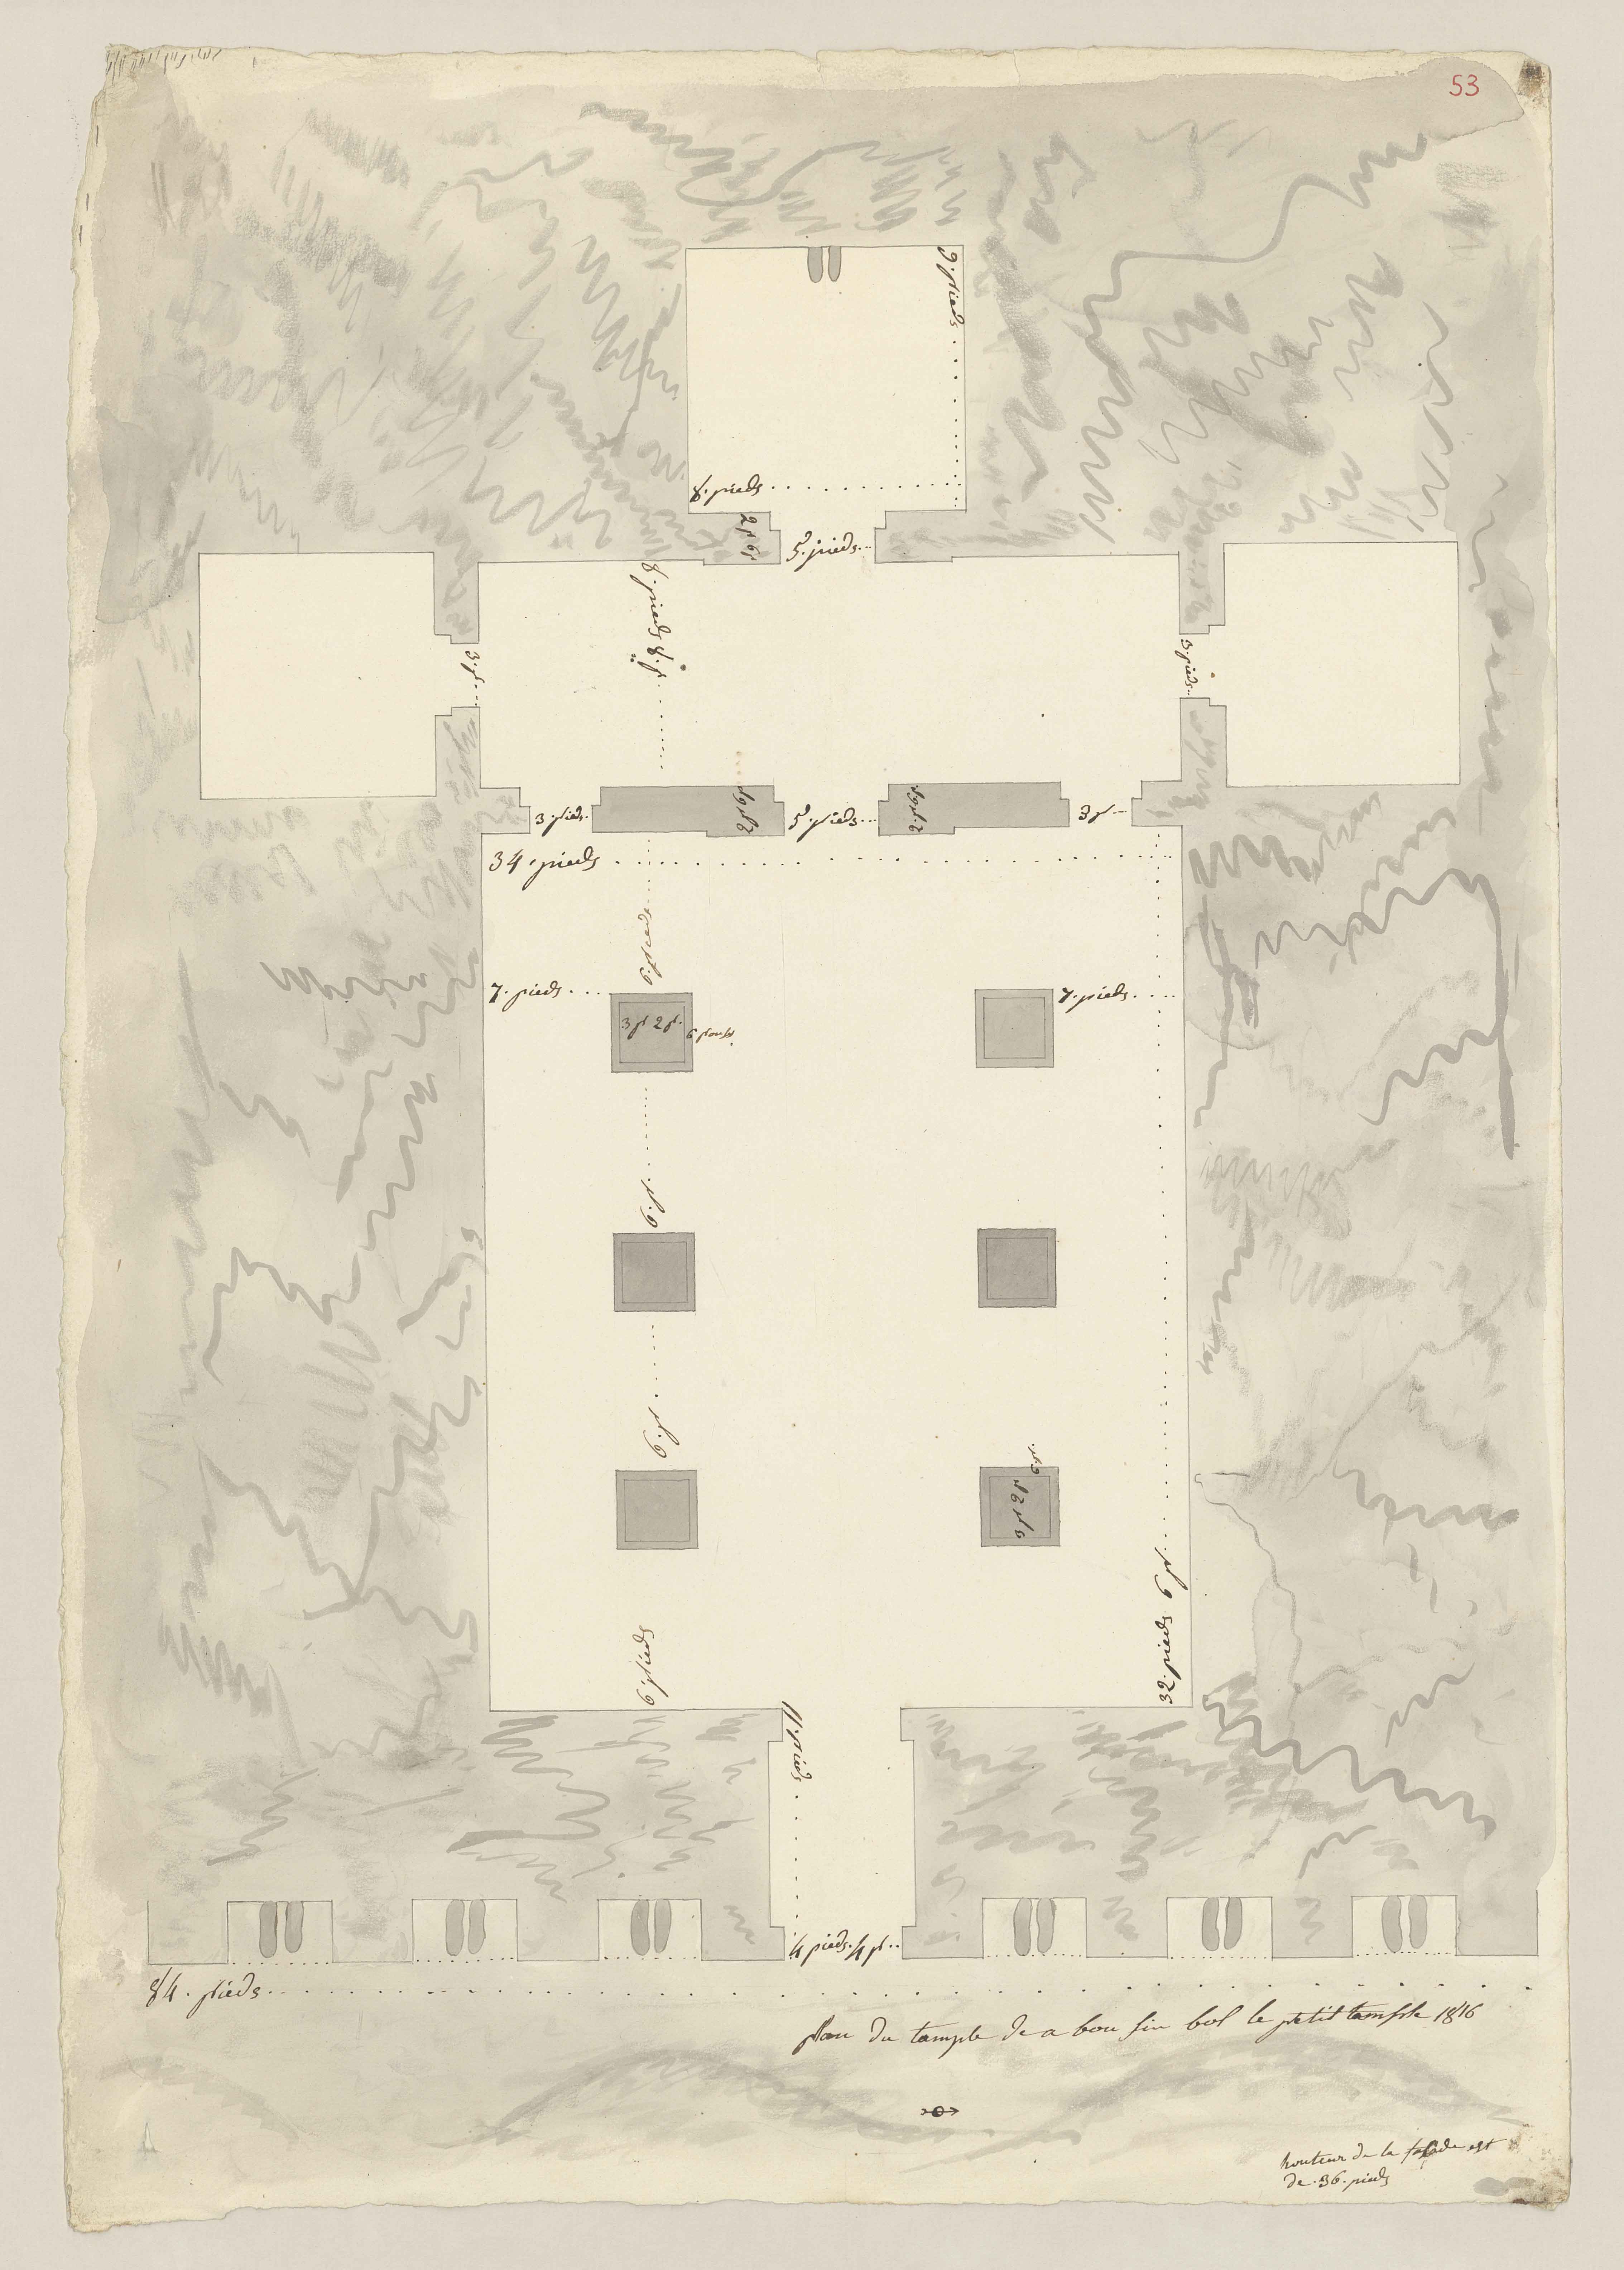 53
9. pieds
8. pieds
2 p 6 p
5. pieds
8. pieds 8. p.
3. p.
3. pieds
3 pieds.
2 p 6 p
5. pieds
2. p 6 p
3 p
34. pieds
6. pieds
7. pieds
7. pieds
3 p 2 p.
6 pouss.
6. p.
6. p.
6 p.
3 p 2 p
6 pieds
32. pieds 6 p.
11. pieds
4 pieds. 4 p.
84. pieds
plan du tample de a bou sin bol le petit tample 1816
houteur de la fasade est
de. 36. pieds